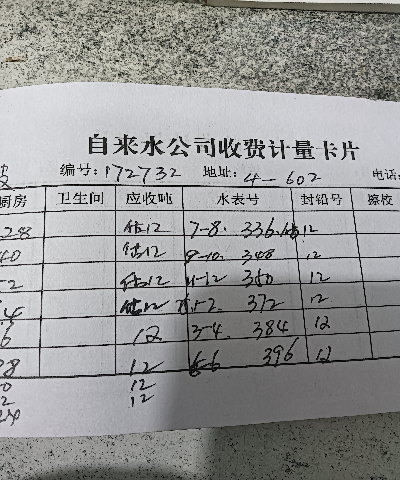 自来水公司收费计量卡片
编号: 172732 地址: 4-602 电话:
厨房 卫生间 应收吨 水表号 封铅号 擦校
28 估12 7-8. 336. 12
40 估12 9-10. 348 12
2 估12 11-12 360 12
4 估12 1-2 372 12
6 12 3-4. 384 12
98 12 396 12
0 12
2 12
24 12